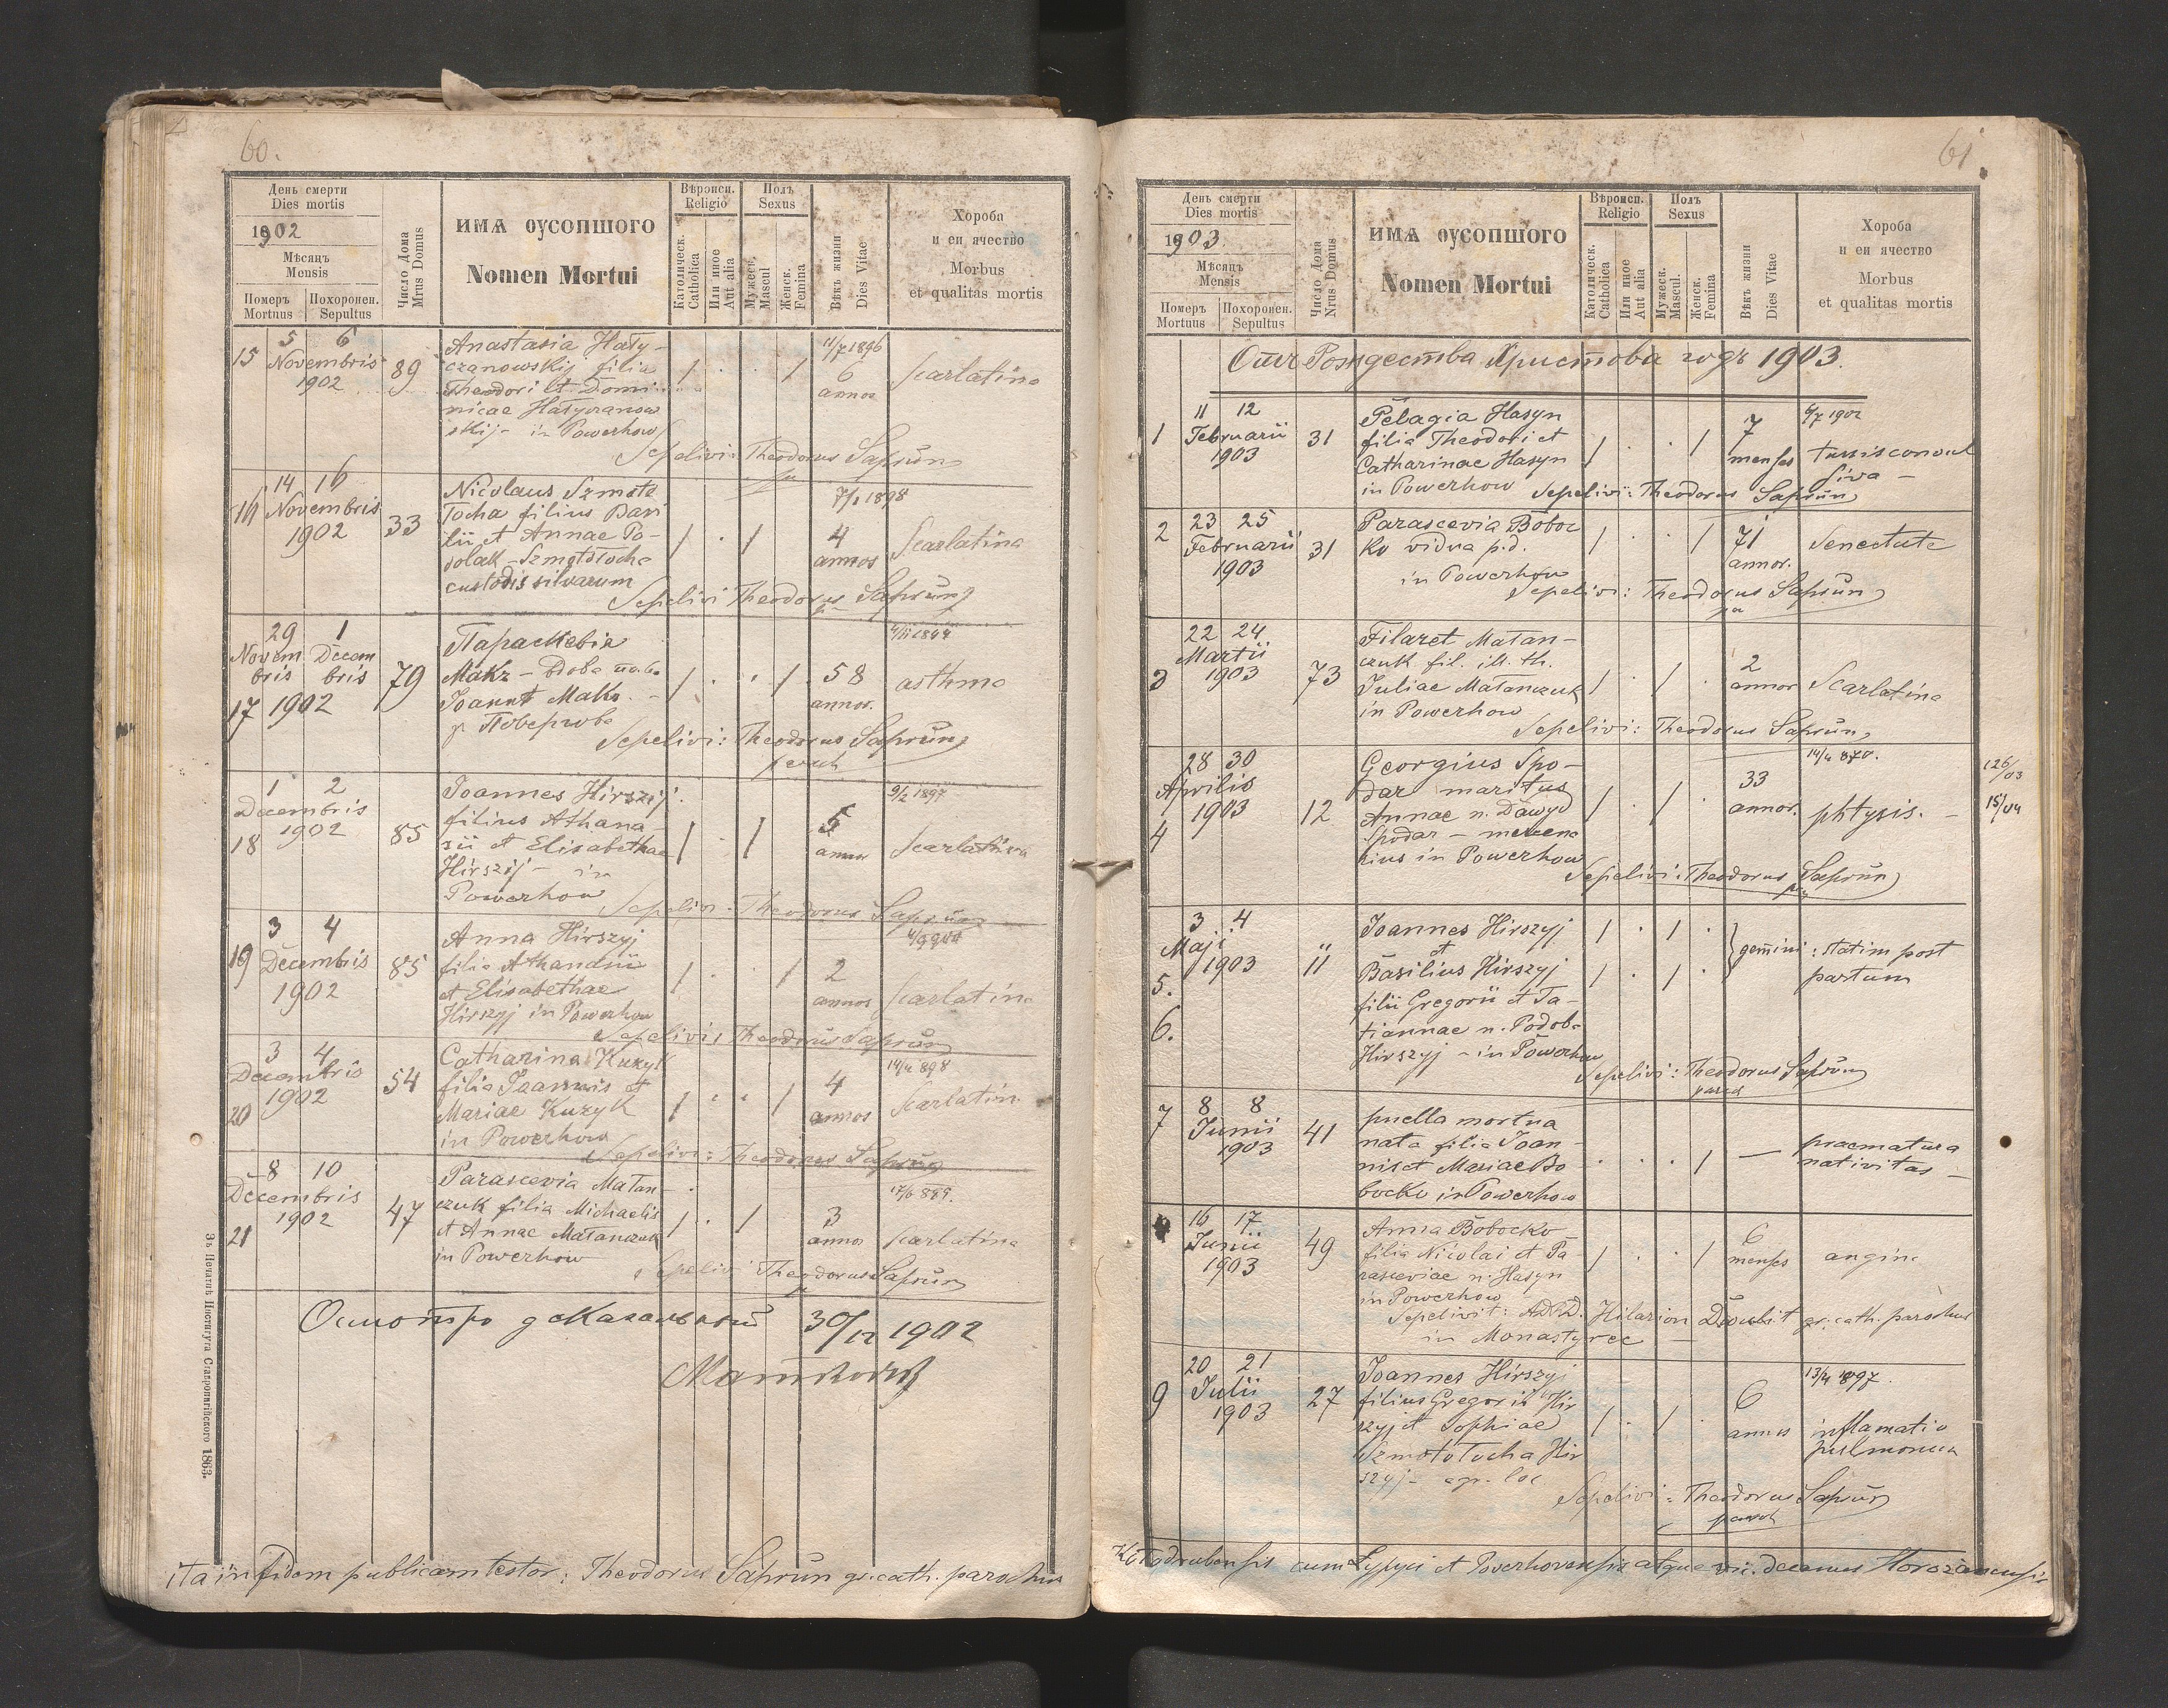 60.
День смерти
Dies mortis
1902
Мѣсяцъ
Mensis
Померъ
Mortuus
Похоронен.
Sepultus
Число Дома
Mrus Domus
ИМѦ ОУСОПШОГО
Nomen Mortui
Вѣроисп.
Religio
Католическ.
Catholica
Или иное
Aut alia
Полъ
Sexus
Мужеск.
Mascul
Женск.
Femina
Вѣкъ жизни
Dies Vitae
Хороба
и еи ячество
Morbus
et qualitas mortis
15 5 6 Novembris 1902 89
Anastasia Hały-
czanowskij filia
Theodori et Domi-
nicae Hałyczanow
skij - in Powerhow
11/7 1896
6 annos
scarlatina
Sepelivi: Theodorus Saprun
16 14 16 Novembris 1902 33
Nicolaus Szmoto
Tocha filius Basi
lii et Annae Po-
dolak - Szmototocha
custodis silvarum
7/1 1898
4 annos
Scarlatina
Sepelivi Theodorus Saprun
17 29 Novembris 1 Decembris 1902 79
Параскевія
Макъ
58 annos.
asthma
Sepelivi: Theodorus Saprun
paroch
18 1 2 Decembris 1902 85
Joannes Hirszyj
filius Athana-
sii et Elisabethae
Hirszyj - in
Powerhow
9/2 1897
5 annos
scarlatina
Sepelivi: Theodorus Saprun
19 3 4 Decembris 1902 85
Anna Hirszyj
filia Athanasii
et Elisabethae
Hirszyj in Powerhow
2 annos
scarlatina
Sepelivi: Theodorus Saprun
20 3 4 Decembris 1902 54
Catharina Kuzyk
filia Joannis et
Mariae Kuzyk
in Powerhow
4 annos
scarlatin
Sepelivi: Theodorus Saprun
21 8 10 Decembris 1902 47
Parascevia Małan-
czuk filia Michaelis
et Annae Małanczuk
in Powerhow
3 annos
scarlatina
Sepelivi Theodorus Saprun
30/12 1902
ita in fidem publicam testor: Theodorus Saprun gr. cath. parochus
Зъ Печатнѣ Института Ставропигійского 1863.
61.
День смерти
Dies mortis
1903.
Мѣсяцъ
Mensis
Померъ
Mortuus
Похоронен.
Sepultus
Число Дома
Nrus Domus
ИМѦ ОУСОПШОГО
Nomen Mortui
Вѣроисп.
Religio
Католическ.
Catholica
Или иное
Aut alia
Полъ
Sexus
Мужеск.
Mascul.
Женск.
Femina
Вѣкъ жизни
Dies Vitae
Хороба
и еи ячество
Morbus
et qualitas mortis
Отъ Рождества Христова годъ 1903.
1 11 12 Februarii 1903 31
Pelagia Hasyn
filia Theodori et
Catharinae Hasyn
in Powerhow
7 menses
6/7 1902
tussis convul
siva -
Sepelivi: Theodorus Saprun
2 23 25 Februarii 1903 31
Parascevia Boboc
ko vidua p.d.
in Powerhow
71 annor.
Senectute
Sepelivi: Theodorus Saprun
3 22 24 Martii 1903 73
Filaret Małan-
czuk fil. ill. th.
Juliae Małanczuk
in Powerhow
2 annor
Scarlatina
Sepelivi: Theodorus Saprun
4 28 30 Aprilis 1903 12
Georgius Spo-
dar maritus
Annae n. Dawyd
Spodar - mercena
rius in Powerhow
33 annor.
14/4 870.
phtysis. -
126/03
15/04
Sepelivi: Theodorus Saprun
5. 6. 3 4 Maji 1903 11
Joannes Hirszyj
et
Basilius Hirszyj
filii Gregorii et Ta-
tiannae n. Podoba
Hirszyj - in Powerhow
gemini: statim post
partum
Sepelivi: Theodorus Saprun
paroch
7 8 8 Junii 1903 41
puella mortua
nata filia Joan-
nis et Mariae Bo
bocko in Powerhow
praematura
nativitas -
16 17 Junii 1903 49
Anna Bobocko
filia Nicolai et Pa
rasceviae n. Hasyn
in Powerhow
6 menses
angina
Sepelivit: ADRD. Hilarion gr. cath. parochus
in Monastyrec
9 20 21 Julii 1903 27
Joannes Hirszyj
filius Gregorii Hir
szyj et Sophiae
Szmototocha Hir
szyj - agr. loc
6 annos
13/4 1897.
inflamatio
pulmonum
Sepelivi: Theodorus Saprun
paroch
Kołodrubensis cum Łypyci et Powerhovensis atque vii. decanus Horożanensis